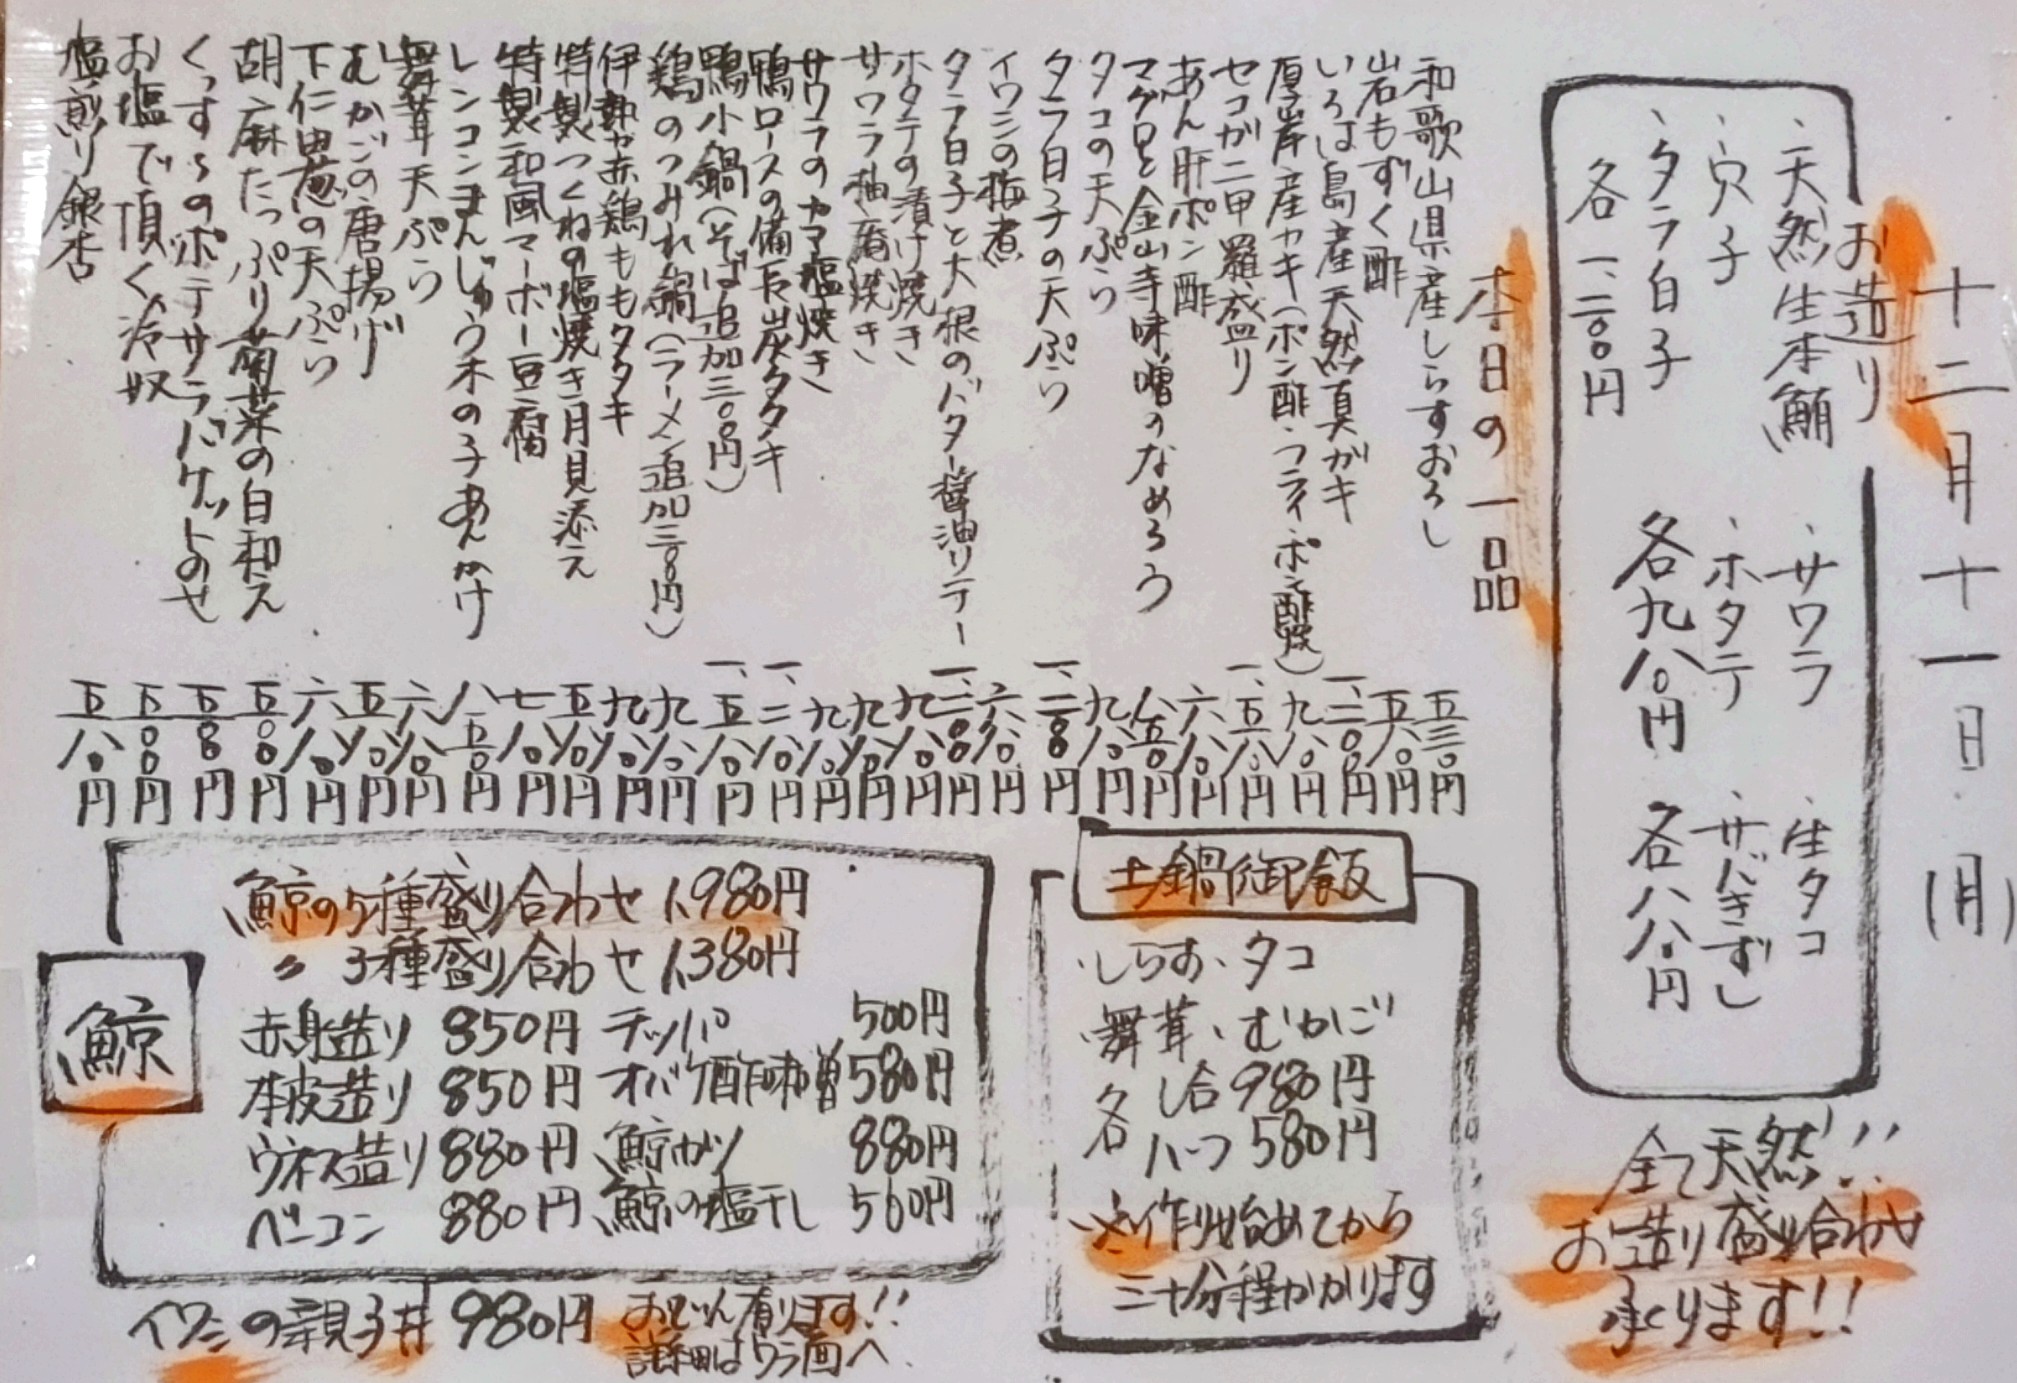 十二月十一日(月)
お造り
・天然生本鮪
・穴子
・タラ白子
各一、二〇〇円
・サワラ
・ホタテ
各九八〇円
・生タコ
・サバきずし
各八八〇円
全て天然!!
お造り盛り合わせ
承ります!!
本日の一品
和歌山県産しらすおろし 五三〇円
岩もずく酢 五八〇円
いろは島産天然真ガキ 一、二〇〇円
厚岸産カキ(ポン酢・フライ・ポン酢焼) 九八〇円
セコガニ甲羅盛り 一、五八〇円
あん肝ポン酢 六八〇円
マグロと金山寺味噌のなめろう 八五〇円
タコの天ぷら 九八〇円
タラ白子の天ぷら 一、二〇〇円
イワシの梅煮 六八〇円
タラ白子と大根のバター醤油ソテー 一、二〇〇円
ホタテの漬け焼き 九八〇円
サワラ柚庵焼き 九八〇円
サワラのカマ塩焼き 九八〇円
鴨ロースの備長炭タタキ 一、二八〇円
鴨小鍋(そば追加三〇〇円) 一、五八〇円
鶏のつみれ鍋(ラーメン追加三〇〇円) 九八〇円
伊勢赤鶏ももタタキ 九八〇円
特製つくねの塩焼き月見添え 五八〇円
特製和風マーボー豆腐 七八〇円
レンコンまんじゅう木の子あんかけ 八五〇円
舞茸天ぷら 六八〇円
むかごの唐揚げ 五八〇円
下仁田葱の天ぷら 六八〇円
胡麻たっぷり菊菜の白和え 五〇〇円
くっすーのポテサラバケットのせ
お塩で頂く冷奴 五〇〇円
塩煎り銀杏 五八〇円
土鍋御飯
・しらす・タコ
・舞茸・むかご
各 1合 980円
各 ハーフ 580円
※作り始めてから
三十分程かかります
鯨
鯨の5種盛り合わせ 1,980円
〃 3種盛り合わせ 1,380円
赤身造り 850円 テッパ 500円
本皮造り 850円 オバケ酢味噌 580円
ウネス造り 880円 鯨カツ 880円
ベーコン 880円 鯨の塩干し 560円
イワシの親子丼 980円
おでん有ります!!
詳細はウラ面へ